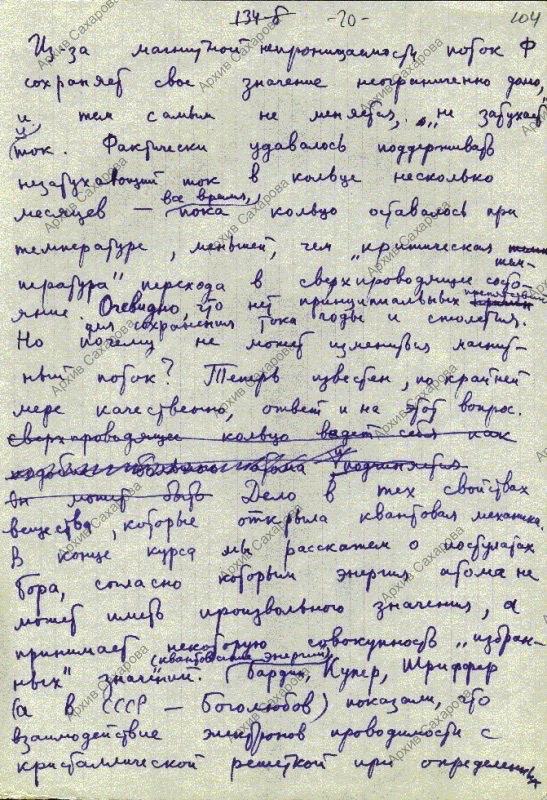 134-б -20- 104
Из за магнитной непроницаемости поток Ф
сохраняет свое значение неограниченно долго,
и тем самым не меняется, „не затухает"
ток. Фактически удавалось поддерживать
незатухающий ток в кольце несколько
месяцев — все время, пока кольцо оставалось при
температуре, меньшей, чем „критическая
температура" перехода в сверхпроводящее состо-
яние. Очевидно, что нет принципиальных препятствий
для сохранения тока годы и столетия.
Но почему не может измениться магнит-
ный поток? Теперь известен, по крайней
мере качественно, ответ и на этот вопрос.
сверхпроводящее кольцо ведет себя как
подобие атома и подчиняется
Он может быть Дело в тех свойствах
вещества, которые открыла квантовая механика.
В конце курса мы расскажем о постулатах
Бора, согласно которым энергия атома не
может иметь произвольного значения, а
принимает некоторую совокупность „избран-
ных" значений. (квантование энергии) Бардин, Купер, Шриффер
(а в СССР — Боголюбов) показали, что
взаимодействие электронов проводимости с
кристаллической решеткой при определенных
Архив Сахарова